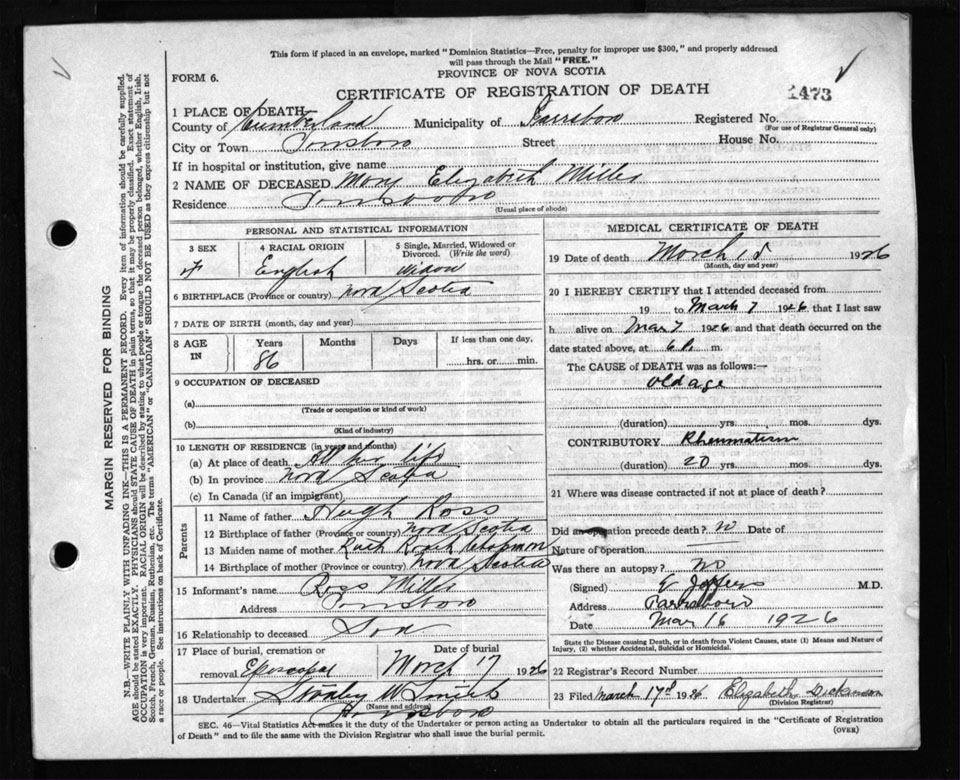 This form if placed in an envelope, marked "Dominion Statistics—Free, penalty for improper use $300," and properly addressed
will pass through the Mail "FREE."
PROVINCE OF NOVA SCOTIA
FORM 6.
CERTIFICATE OF REGISTRATION OF DEATH
1473
1 PLACE OF DEATH
County of Cumberland Municipality of Parrsboro Registered No.
(For use of Registrar General only)
City or Town Street House No.
If in hospital or institution, give name
2 NAME OF DECEASED Mary Elizabeth Mills
Residence
(Usual place of abode)
PERSONAL AND STATISTICAL INFORMATION
3 SEX 4 RACIAL ORIGIN 5 Single, Married, Widowed or Divorced. (Write the word)
F English widow
6 BIRTHPLACE (Province or country) Nova Scotia
7 DATE OF BIRTH (month, day and year)
8 AGE IN Years Months Days If less than one day,
86 hrs. or min.
9 OCCUPATION OF DECEASED
(a)
(Trade or occupation or kind of work)
(b)
(Kind of industry)
10 LENGTH OF RESIDENCE (in years and months)
(a) At place of death All her life
(b) In province Nova Scotia
(c) In Canada (if an immigrant)
Parents
11 Name of father Hugh Ross
12 Birthplace of father (Province or country) Nova Scotia
13 Maiden name of mother Chapman
14 Birthplace of mother (Province or country) Nova Scotia
15 Informant's name Ross Mills
Address
16 Relationship to deceased Son
17 Place of burial, cremation or removal Episcopal Date of burial March 17 1926
18 Undertaker Stanley W Smith
(Name and address)
MEDICAL CERTIFICATE OF DEATH
19 Date of death March 15 1926
(Month, day and year)
20 I HEREBY CERTIFY that I attended deceased from
19 to March 7 1926 that I last saw
h alive on Mar 7 1926 and that death occurred on
date stated above, at 6 P. m.
The CAUSE of DEATH was as follows:—
old age
(duration) yrs. mos. dys.
CONTRIBUTORY Rheumatism
(duration) 20 yrs. mos. dys.
21 Where was disease contracted if not at place of death?
Did an operation precede death? No Date of
Nature of operation
Was there an autopsy? No
(Signed) E Jeffers M.D.
Address Parrsboro
Date Mar 16 1926
State the Disease causing Death, or in death from Violent Causes, state (1) Means and Nature of
Injury, (2) whether Accidental, Suicidal or Homicidal.
22 Registrar's Record Number
23 Filed March 17th 1926 Elizabeth Dickinson
(Division Registrar)
SEC. 46—Vital Statistics Act makes it the duty of the Undertaker or person acting as Undertaker to obtain all the particulars required in the "Certificate of Registration
of Death" and to file the same with the Division Registrar who shall issue the burial permit.
(OVER)
MARGIN RESERVED FOR BINDING
N.B.—WRITE PLAINLY WITH UNFADING INK—THIS IS A PERMANENT RECORD. Every item of information should be carefully supplied.
AGE should be stated EXACTLY. PHYSICIANS should STATE CAUSE OF DEATH in plain terms, so that it may be properly classified. Exact statement of
OCCUPATION is very important. RACIAL ORIGIN will be described by stating to what people or tongue the deceased person belonged, whether English, Irish,
Scotch, French, German, Russian, Ruthenian, etc. The terms "AMERICAN" or "CANADIAN" SHOULD NOT BE USED as they express citizenship but not
a race or people. See instructions on back of Certificate.